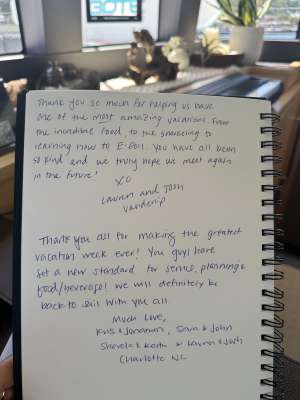 BOTE
Thank you so much for helping us have
one of the most amazing vacations. From
the incredible food, to the snorkeling to
learning how to E-Foil. You have all been
so kind and we truly hope we meet again
in the future!
XO
Lauren and Josh
Thank you all for making the greatest
vacation week ever! You guys have
set a new standard for service, planning &
food/beverage! We will definitely be
back to sail with you all.
Much Love,
Kris & Jonathan, Sara & John
& Keith & Lauren & Josh
Charlotte NC